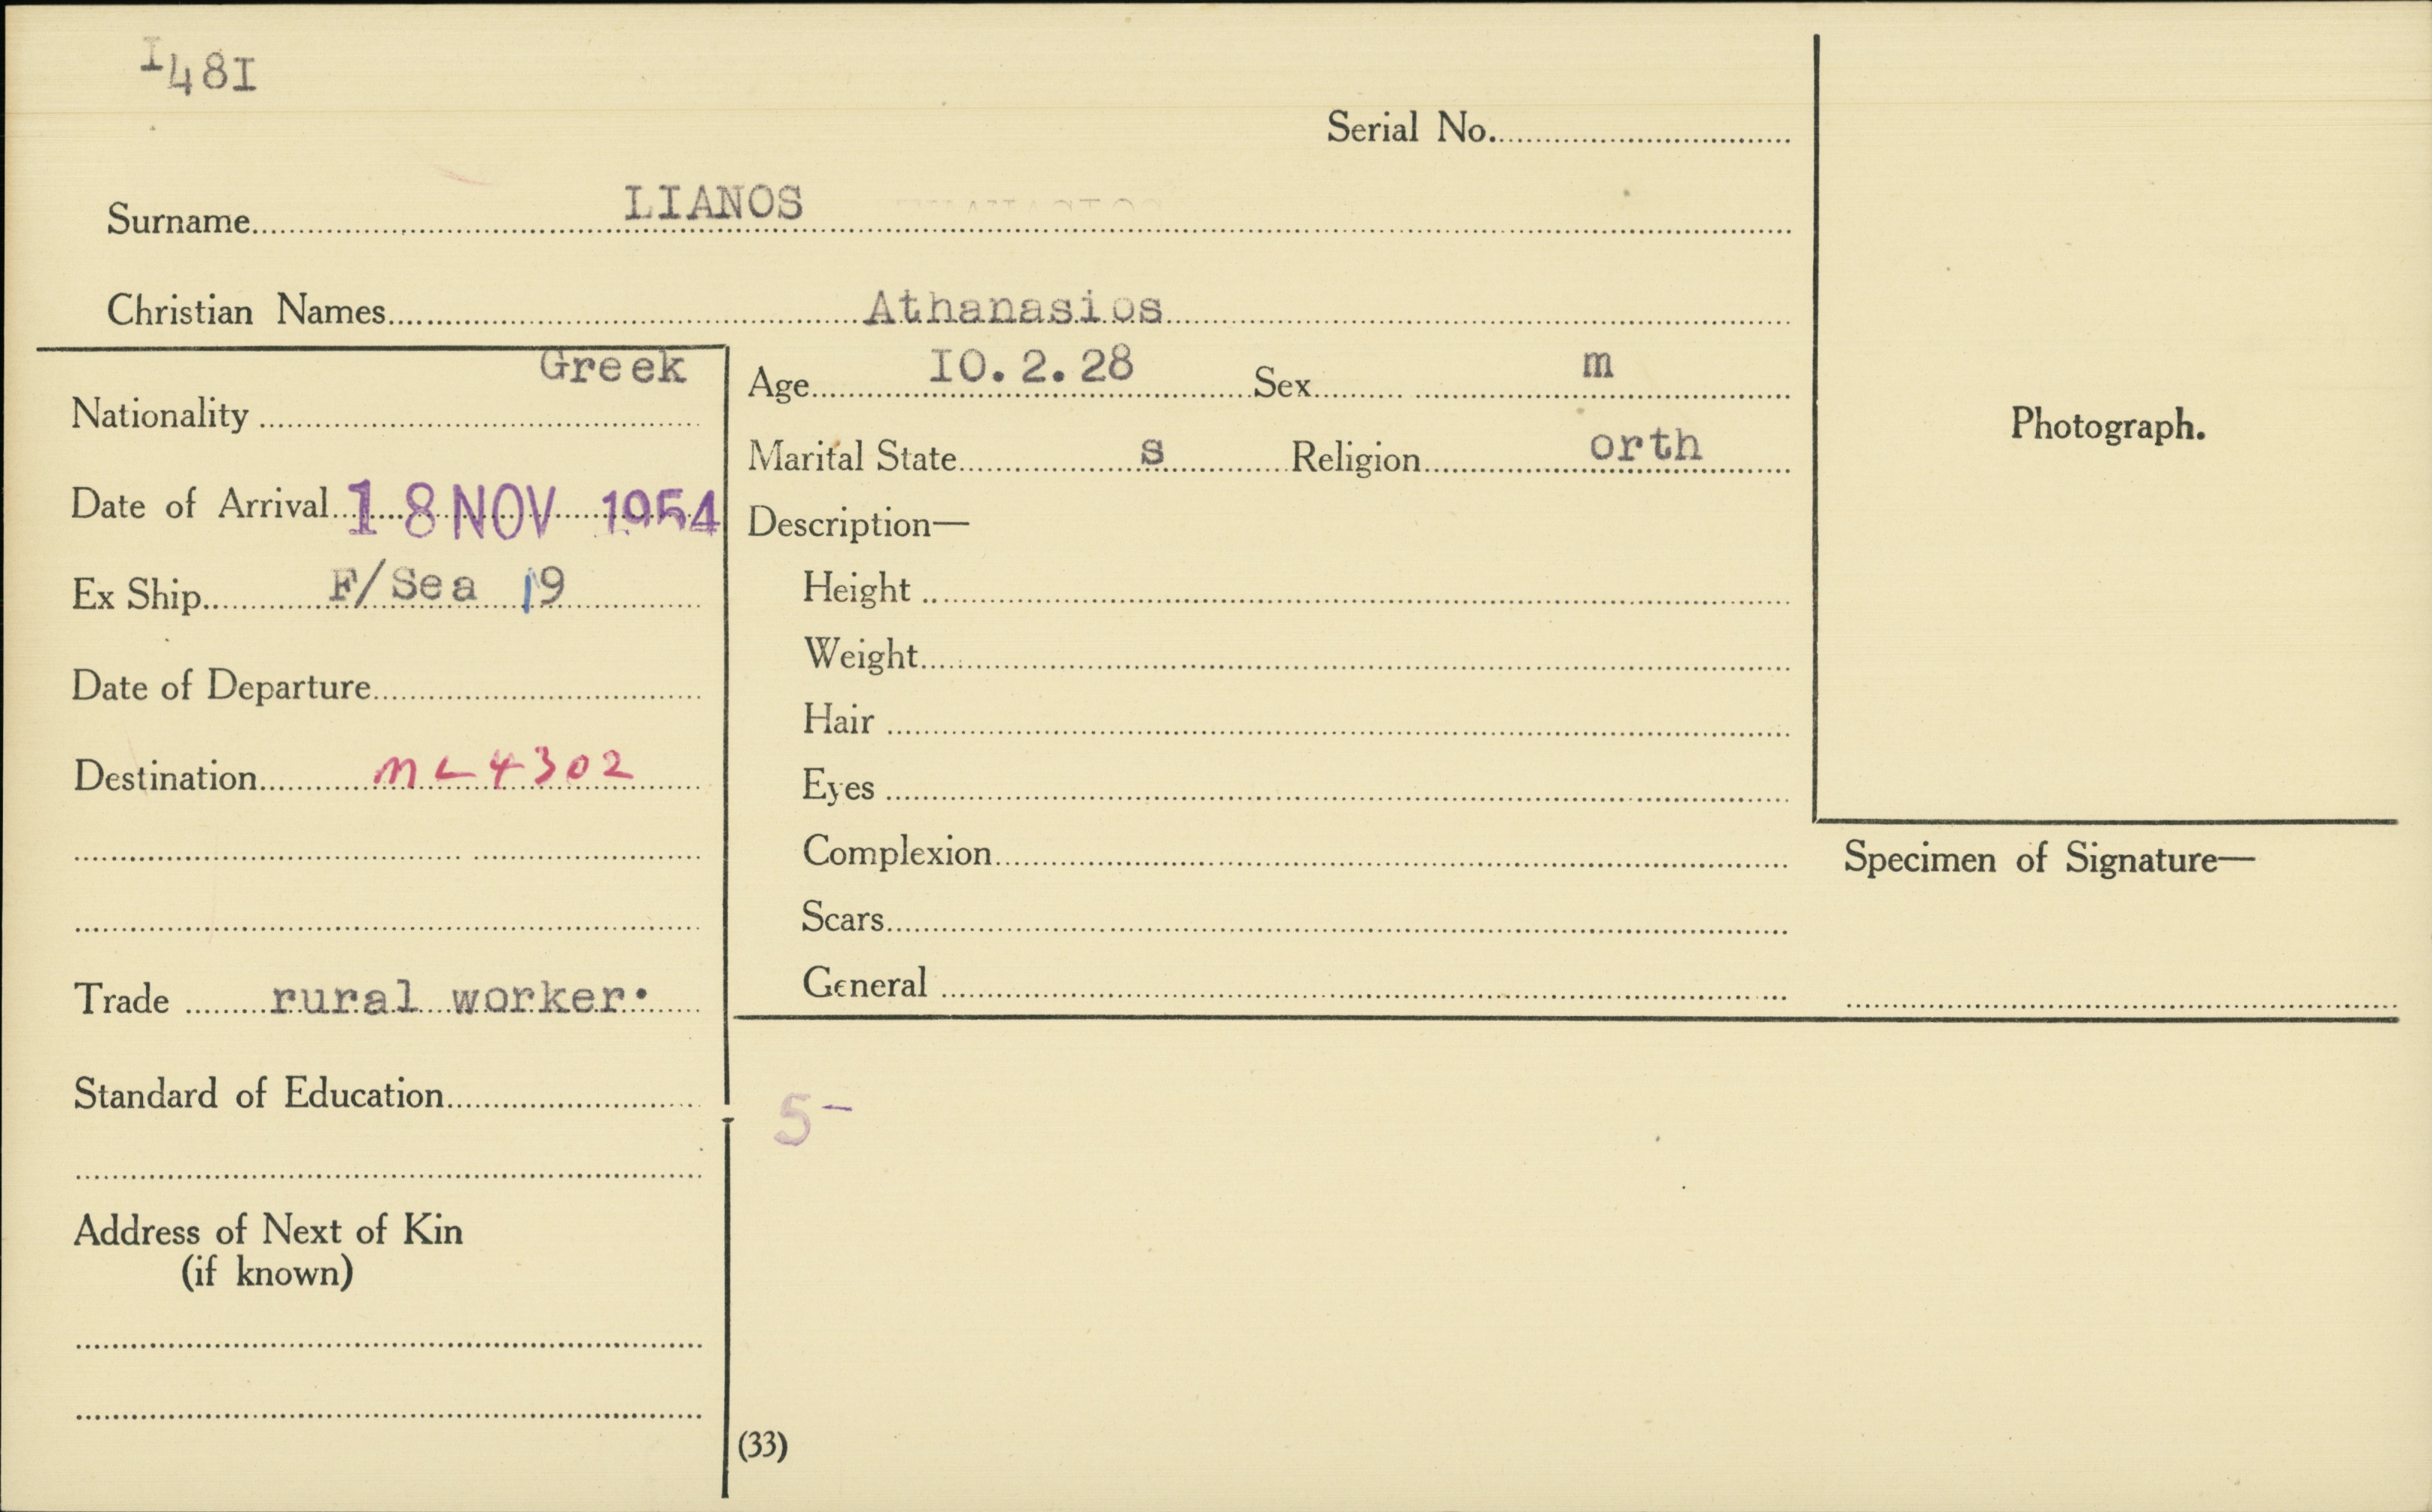 I48I
Serial No.
Surname LIANOS
Christian Names Athanasios
Greek
Nationality
Date of Arrival 18 NOV 1954
Ex Ship F/Sea 19
Date of Departure
Destination ML 4302
Trade rural worker.
Standard of Education
Address of Next of Kin
(if known)
Age IO.2.28 Sex m
Marital State s Religion orth
Description—
Height
Weight
Hair
Eyes
Complexion
Scars
General
Photograph.
Specimen of Signature—
5-
(33)